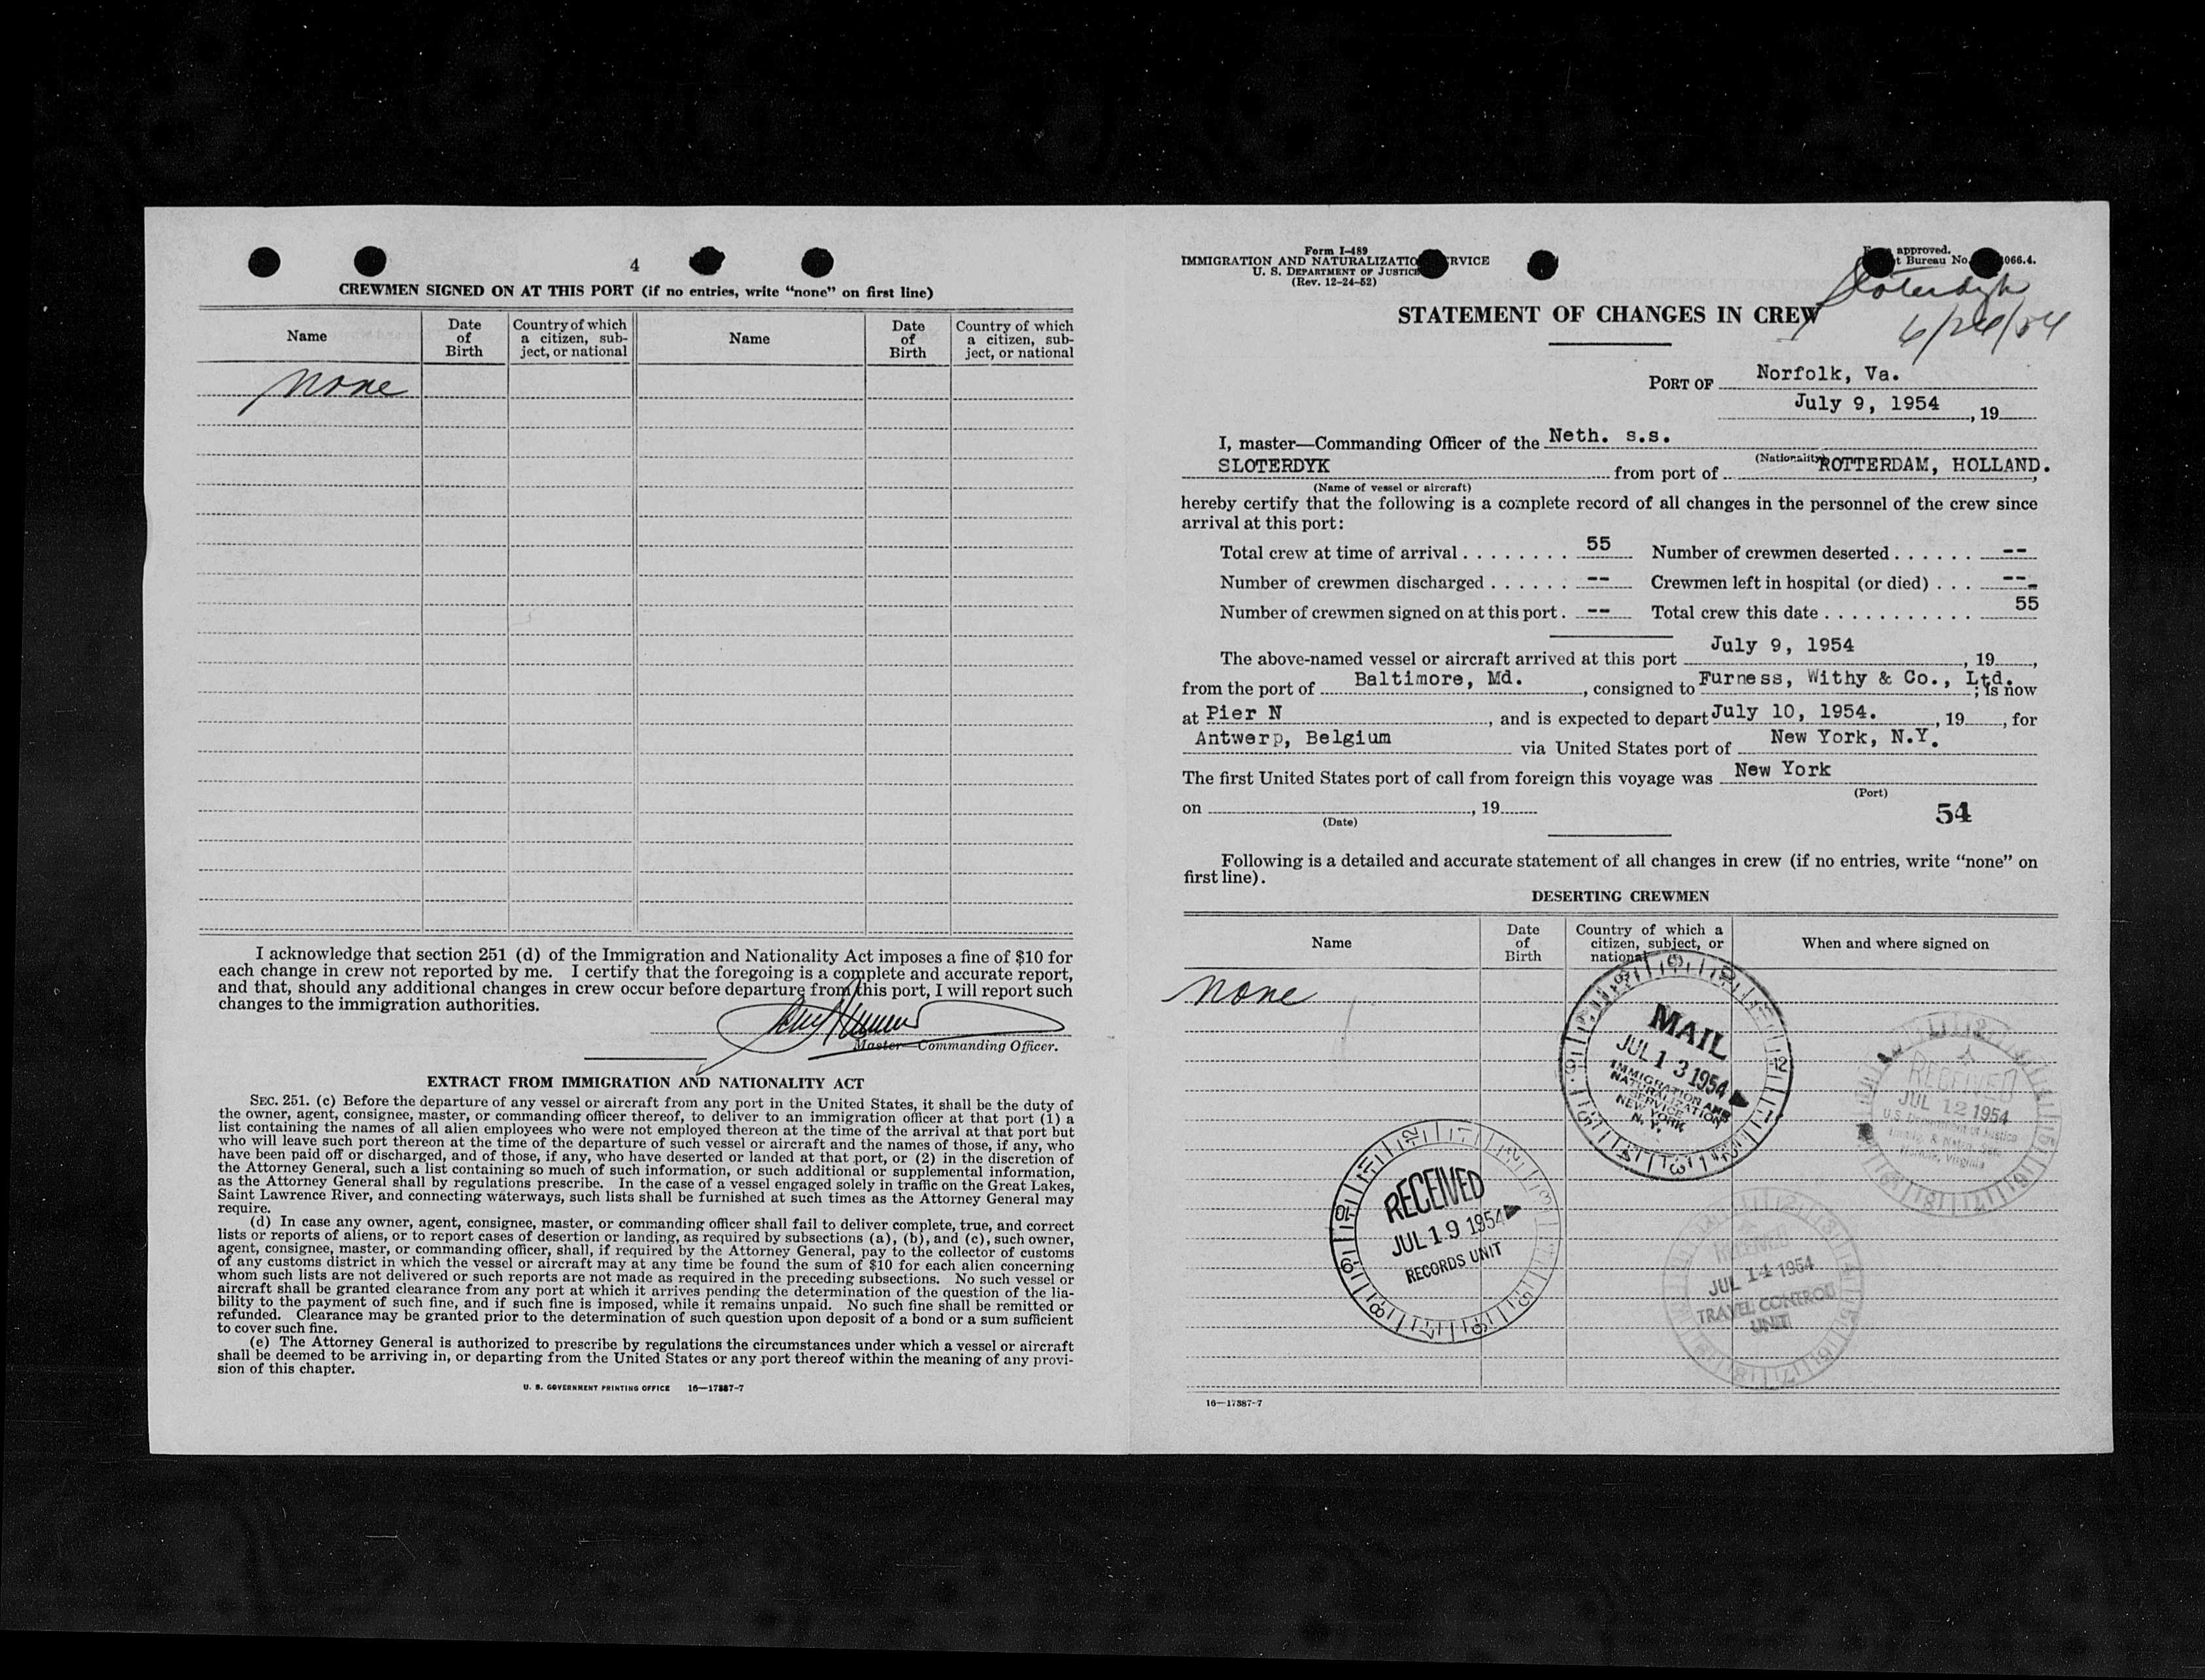 4
CREWMEN SIGNED ON AT THIS PORT (if no entries, write "none" on first line)
Name
Date of Birth
Country of which a citizen, sub-ject, or national
Name
Date of Birth
Country of which a citizen, sub-ject, or national
None
I acknowledge that section 251 (d) of the Immigration and Nationality Act imposes a fine of $10 for
each change in crew not reported by me. I certify that the foregoing is a complete and accurate report,
and that, should any additional changes in crew occur before departure from this port, I will report such
changes to the immigration authorities.
Master—Commanding Officer.
EXTRACT FROM IMMIGRATION AND NATIONALITY ACT
SEC. 251. (c) Before the departure of any vessel or aircraft from any port in the United States, it shall be the duty of
the owner, agent, consignee, master, or commanding officer thereof, to deliver to an immigration officer at that port (1) a
list containing the names of all alien employees who were not employed thereon at the time of the arrival at that port but
who will leave such port thereon at the time of the departure of such vessel or aircraft and the names of those, if any, who
have been paid off or discharged, and of those, if any, who have deserted or landed at that port, or (2) in the discretion of
the Attorney General, such a list containing so much of such information, or such additional or supplemental information,
as the Attorney General shall by regulations prescribe. In the case of a vessel engaged solely in traffic on the Great Lakes,
Saint Lawrence River, and connecting waterways, such lists shall be furnished at such times as the Attorney General may
require.
(d) In case any owner, agent, consignee, master, or commanding officer shall fail to deliver complete, true, and correct
lists or reports of aliens, or to report cases of desertion or landing, as required by subsections (a), (b), and (c), such owner,
agent, consignee, master, or commanding officer, shall, if required by the Attorney General, pay to the collector of customs
of any customs district in which the vessel or aircraft may at any time be found the sum of $10 for each alien concerning
whom such lists are not delivered or such reports are not made as required in the preceding subsections. No such vessel or
aircraft shall be granted clearance from any port at which it arrives pending the determination of the question of the lia-
bility to the payment of such fine, and if such fine is imposed, while it remains unpaid. No such fine shall be remitted or
refunded. Clearance may be granted prior to the determination of such question upon deposit of a bond or a sum sufficient
to cover such fine.
(e) The Attorney General is authorized to prescribe by regulations the circumstances under which a vessel or aircraft
shall be deemed to be arriving in, or departing from the United States or any port thereof within the meaning of any provi-
sion of this chapter.
U. S. GOVERNMENT PRINTING OFFICE 16—17887-7
Form I-489
IMMIGRATION AND NATURALIZATIO RVICE
U. S. DEPARTMENT OF JUSTICE
(Rev. 12-24-52)
approved.
t Bureau No. 066.4.
Sloterdyk
6/24/54
STATEMENT OF CHANGES IN CREW
PORT OF Norfolk, Va.
July 9, 1954, 19
I, master—Commanding Officer of the Neth. s.s.
(Nationality)
SLOTERDYK from port of ROTTERDAM, HOLLAND.
(Name of vessel or aircraft)
hereby certify that the following is a complete record of all changes in the personnel of the crew since
arrival at this port:
Total crew at time of arrival . . . . . . . . 55 Number of crewmen deserted . . . . . . --
Number of crewmen discharged . . . . . . -- Crewmen left in hospital (or died) . . . --
Number of crewmen signed on at this port . -- Total crew this date . . . . . . . . . . . 55
The above-named vessel or aircraft arrived at this port July 9, 1954, 19,
from the port of Baltimore, Md., consigned to Furness, Withy & Co., Ltd.; is now
at Pier N, and is expected to depart July 10, 1954., 19, for
Antwerp, Belgium via United States port of New York, N.Y.
The first United States port of call from foreign this voyage was New York
(Port)
on , 19
(Date)
54
Following is a detailed and accurate statement of all changes in crew (if no entries, write "none" on
first line).
DESERTING CREWMEN
Name
Date of Birth
Country of which a citizen, subject, or national
When and where signed on
None
MAIL
JUL 13 1954
IMMIGRATION AND
NATURALIZATION
SERVICE
NEW YORK
N. Y.
RECEIVED
JUL 12 1954
U.S. Department of Justice
Immig. & Natzn. Serv.
Norfolk, Virginia
RECEIVED
JUL 19 1954
RECORDS UNIT
RECEIVED
JUL 14 1954
TRAVEL CONTROL
UNIT
16—17887-7